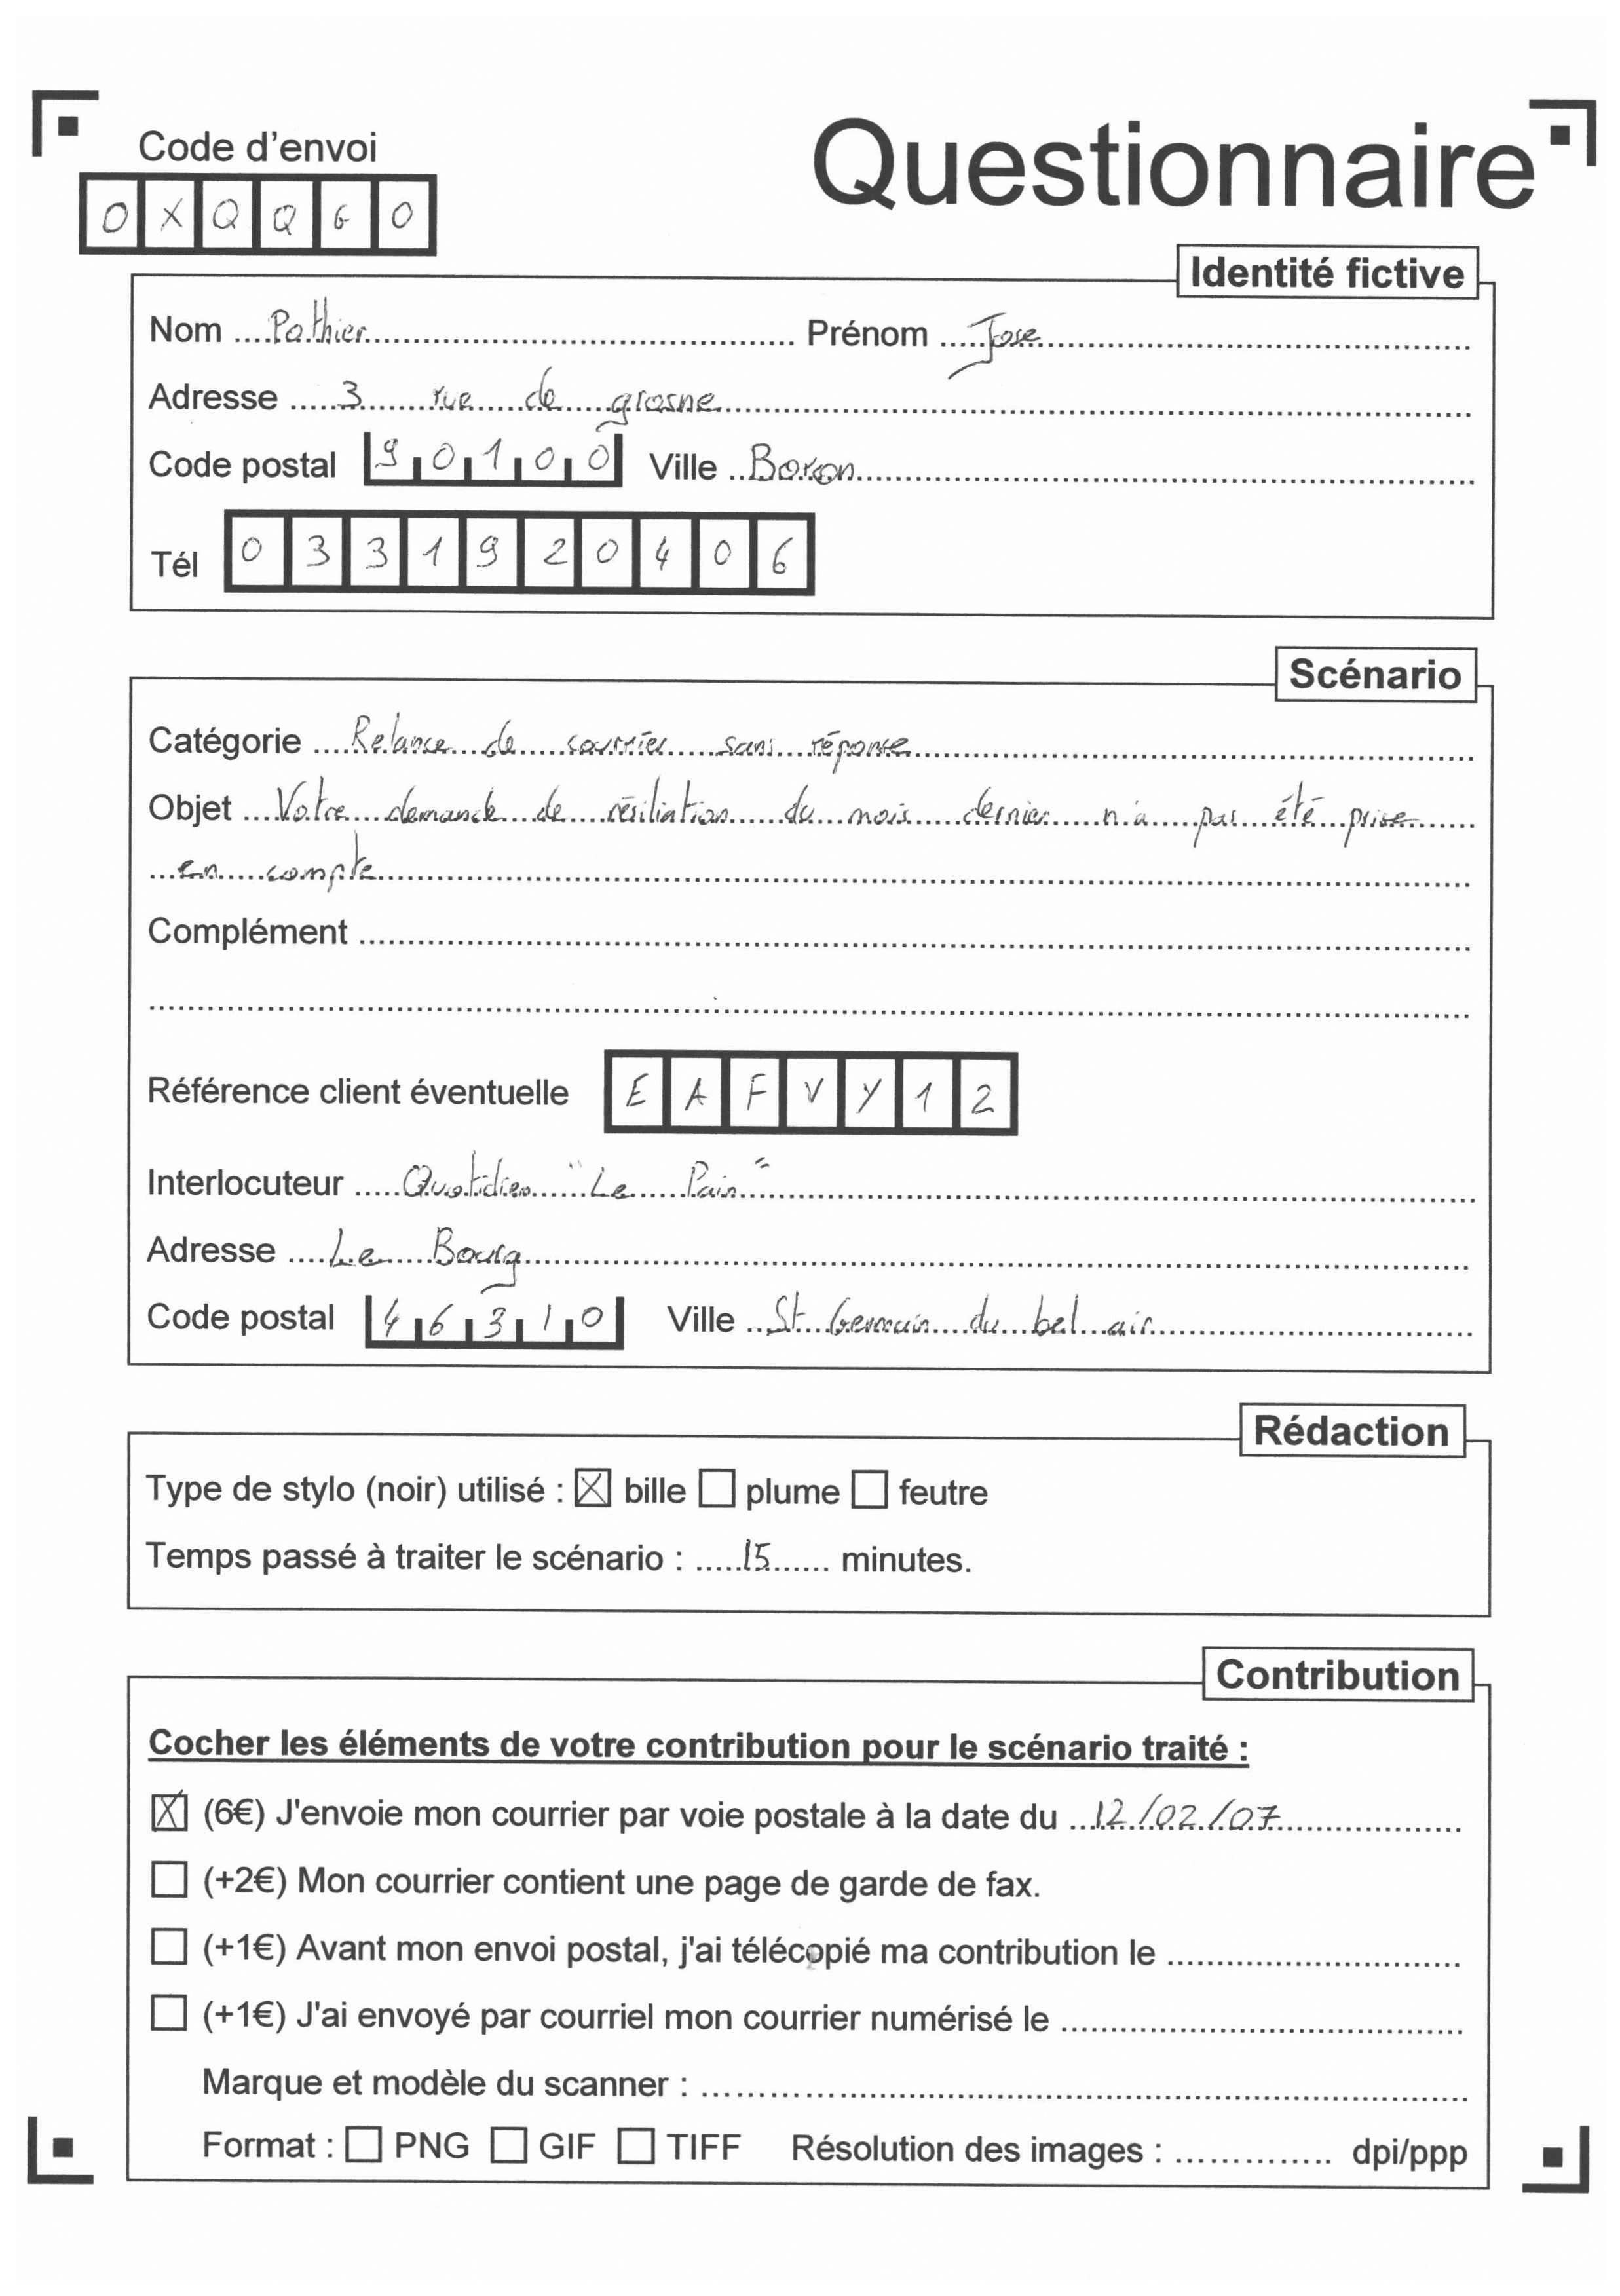 Code d'envoi
Questionnaire
O X Q Q G O
Identité fictive
Nom Pothier Prénom Jose
Adresse 3 rue de grosne
Code postal 90100 Ville Boron
Tél 0331920406
Scénario
Catégorie Relance de courrier sans réponse
Objet Votre demande de résiliation du mois dernier n'a pas été prise
en compte
Complément
Référence client éventuelle EAFVY12
Interlocuteur Quotidien "Le Pain"
Adresse Le Bourg
Code postal 46310 Ville St Germain du bel air
Rédaction
Type de stylo (noir) utilisé : ☒ bille ☐ plume ☐ feutre
Temps passé à traiter le scénario : 15 minutes.
Contribution
Cocher les éléments de votre contribution pour le scénario traité :
☒ (6€) J'envoie mon courrier par voie postale à la date du 12/02/07
☐ (+2€) Mon courrier contient une page de garde de fax.
☐ (+1€) Avant mon envoi postal, j'ai télécopié ma contribution le
☐ (+1€) J'ai envoyé par courriel mon courrier numérisé le
Marque et modèle du scanner :
Format : ☐ PNG ☐ GIF ☐ TIFF Résolution des images : dpi/ppp